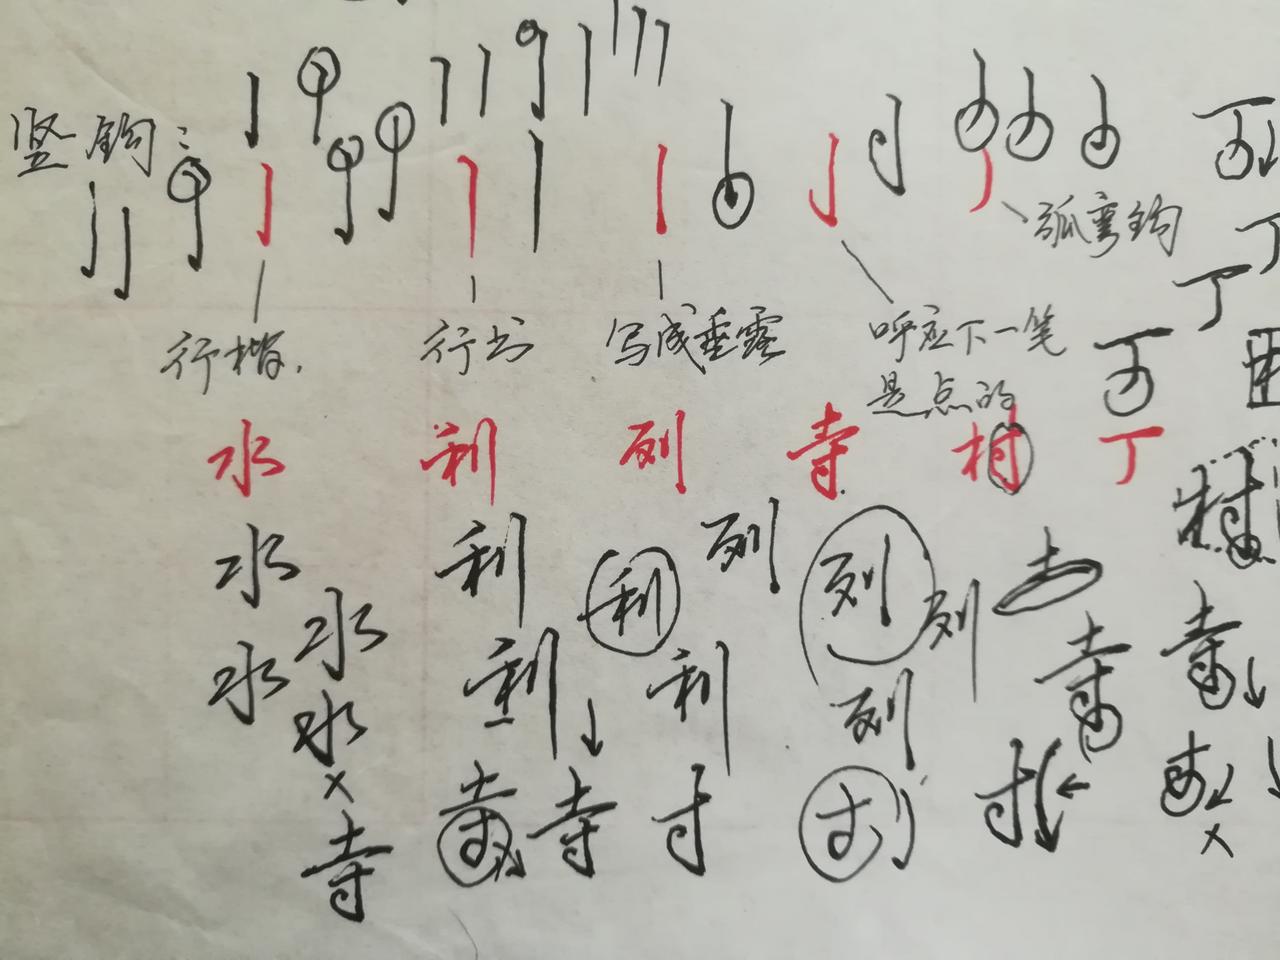 竖钩：
弧弯钩
行楷．
行书
写成垂露
呼应下一笔
是点的
丁
丁
水 利 列 寺 村 丁
水 利 利 列 列 列 村
水 水 利 利 列 寺 寺
水
寺 寺 寸 寸 寸
寺